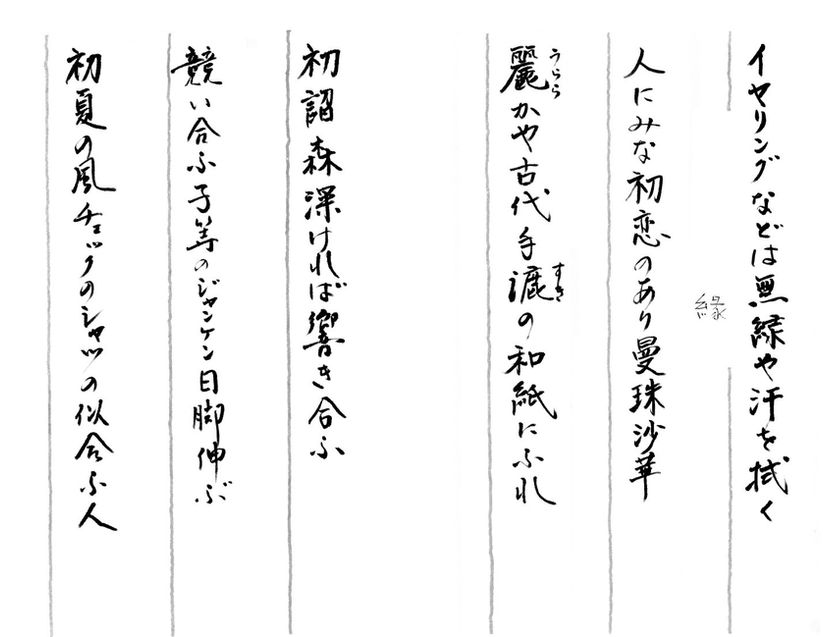 イヤリングなどは無縁や汗を拭く
縁
人にみな初恋のあり曼珠沙華
うらら
すき
麗かや古代手漉の和紙にふれ
初詣森深ければ響き合ふ
競い合ふ子等のジャンケン日脚伸ぶ
初夏の風チェックのシャツの似合ふ人